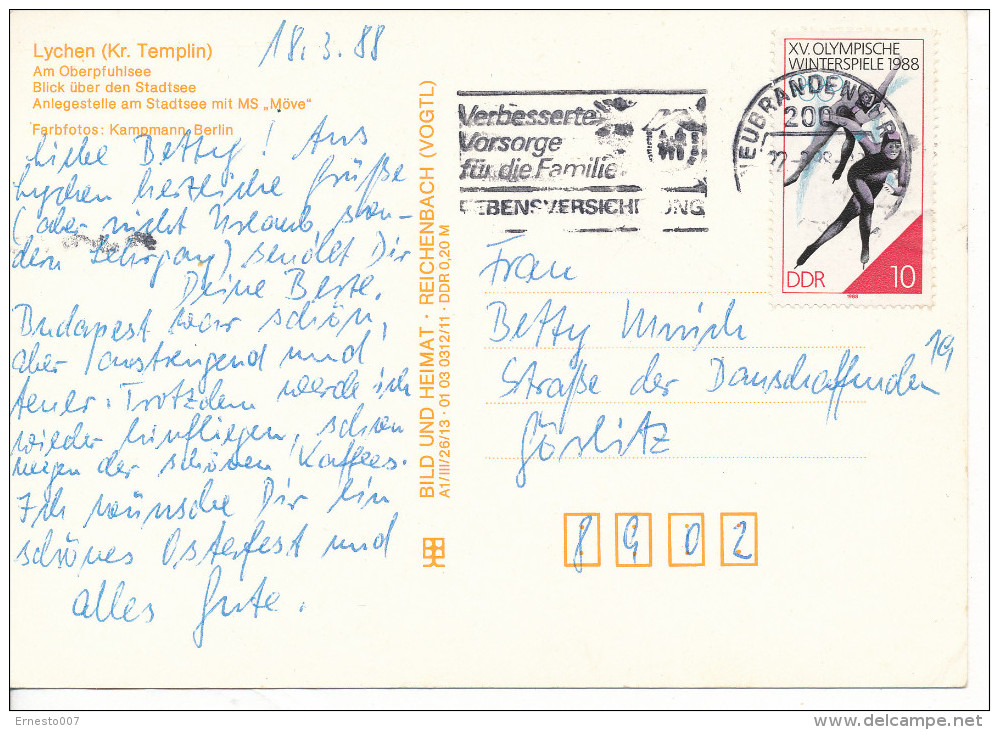 Lychen (Kr. Templin)
Am Oberpfuhlsee
Blick über den Stadtsee
Anlegestelle am Stadtsee mit MS „Möve"
Farbfotos: Kampmann, Berlin
18.3.88
Liebe Betty! Aus
Lychen herzliche Grüße
(aber nicht Urlaub son-
dern Lehrgang) sendet Dir
Deine Beate.
Budapest war schön,
aber anstrengend und
teuer. Trotzdem werde ich
wieder hinfliegen, schon
wegen der schönen Kaffees.
Ich wünsche Dir ein
schönes Osterfest und
alles Gute.
BILD UND HEIMAT · REICHENBACH (VOGTL)
A1/III/26/13 · 01 03 0312/11 · DDR 0,20 M
Verbesserte
Vorsorge
für die Familie
LEBENSVERSICHERUNG
NEUBRANDENBURG
200
XV. OLYMPISCHE
WINTERSPIELE 1988
DDR 10
1988
Frau
Betty
Straße der 19
Görlitz
8902
Ernesto007
delcampe.net